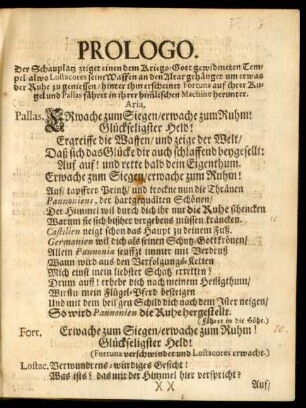 PROLOGO.
Der Schauplatz zeiget einen dem Kriegs-Gott gewidmeten Tem-
pel alwo Lostacores seine Waffen an den Altar gehänget um etwas
der Ruhe zu geniessen/ hinter ihm erscheinet Fortuna auf ihrer Ku-
gel und Pallas fähret in ihrer himlischen Machine herunter.
Aria.
Pallas. ERwache zum Siegen/ erwache zum Ruhm!
Glückseligster Held!
Ergreiffe die Waffen/ und zeige der Welt/
Daß sich das Glücke dir auch schlaffend beygesellt:
Auf auf! und rette bald dein Eigenthum.
Erwache zum Siegen/ erwache zum Ruhm!
Auf/ tapffrer Printz/ und trockne nun die Thränen
Pannoniens, der hartgequälten Schönen/
Der Himmel wil durch dich ihr nun die Ruhe schencken
Warum sie sich bißher vergebens müssen kräncken.
Castilien neigt schon das Haupt zu deinem Fuß.
Germanien wil dich als seinen Schutz-Gott krönen/
Allein Pannonia seuffzt immer mit Verdruß
Wann wird aus den Verfolgungs-Ketten
Mich einst mein liebster Schatz erretten!
Drum auff! erhebe dich nach meinem Heiligthum/
Wirstu mein Flügel-Pferd besteigen
Und mit dem heilgen Schild dich nach dem Ister neigen/
So wird Pannonien die Ruhe hergestellt.
(Fähret in die Höhe.)
Fort. Erwache zum Siegen/ erwache zum Ruhm!
Glückseligster Held!
(Fortuna verschwindet und Lostacores erwacht.)
Lostac. Verwundrens-würdiges Gesicht!
Was ists! das mir der Himmel hier verspricht?
XX
Auf/